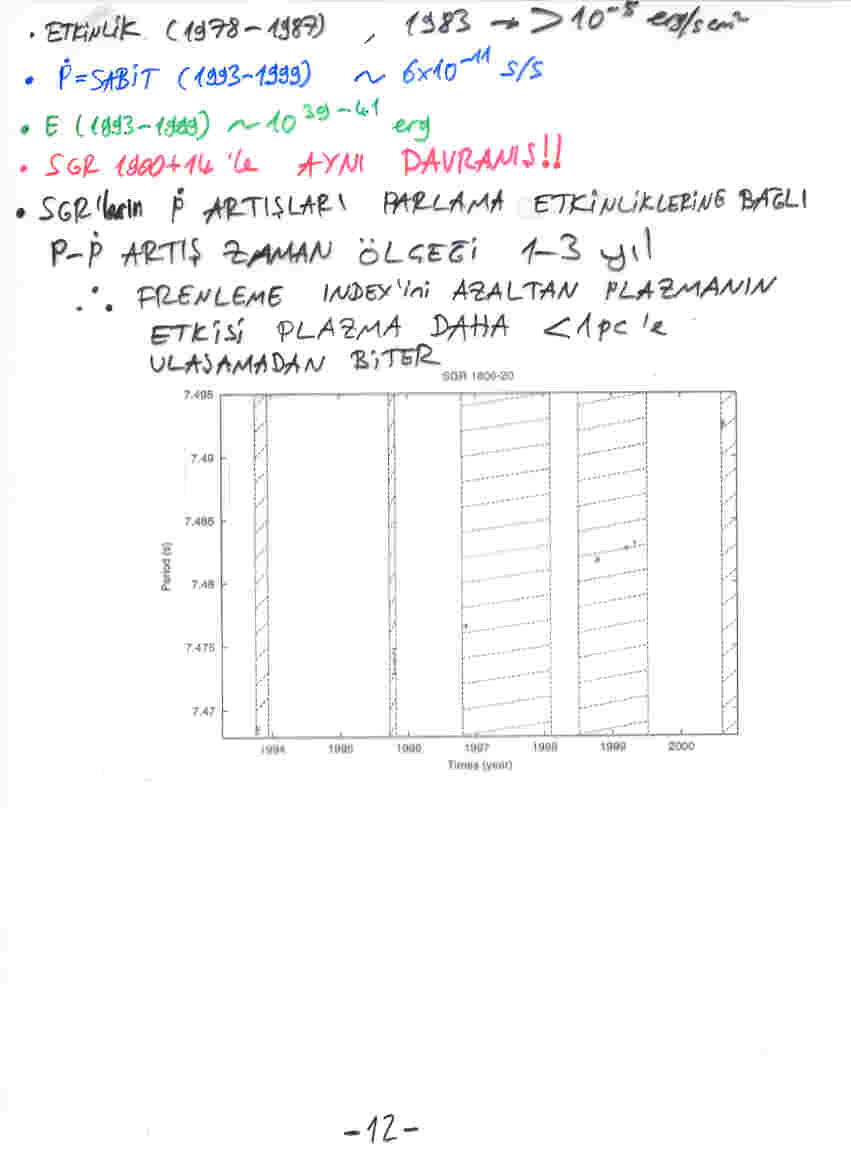 • ETKİNLİK (1978-1987) , 1983 → >10⁻⁵ erg/s cm²
• Ṗ=SABİT (1993-1999) ~ 6x10⁻¹¹ s/s
• E (1993-1999) ~10³⁹⁻⁴¹ erg
• SGR 1900+14 'le AYNI DAVRANIS!!
• SGR'ların Ṗ ARTIŞLARI PARLAMA ETKİNLİKLERİNE BAĞLI
P-Ṗ ARTIŞ ZAMAN ÖLÇEĞİ 1-3 yıl
∴ FRENLEME INDEX'ini AZALTAN PLAZMANIN
ETKİSİ PLAZMA DAHA <1pc 'e
ULAŞAMADAN BİTER
SGR 1806-20
7.495
7.49
7.485
7.48
7.475
7.47
Period (s)
1994 1995 1996 1997 1998 1999 2000
Times (year)
-12-